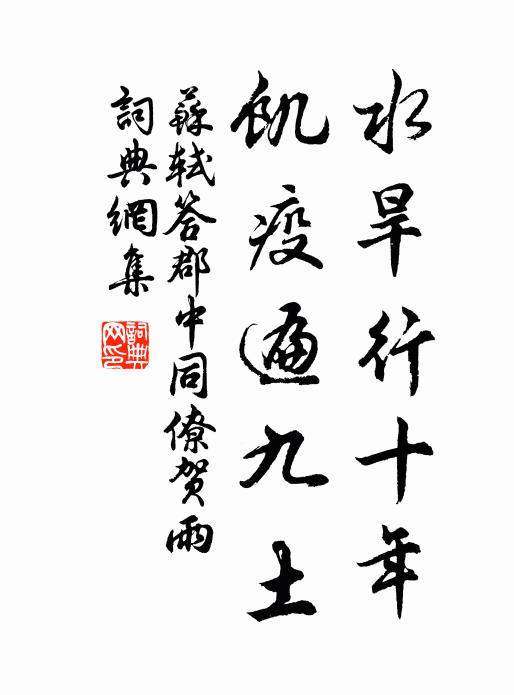 水旱行十年
飢疫遍九土
蘇軾答郡中同僚贺雨
詞典網集
詞典网印